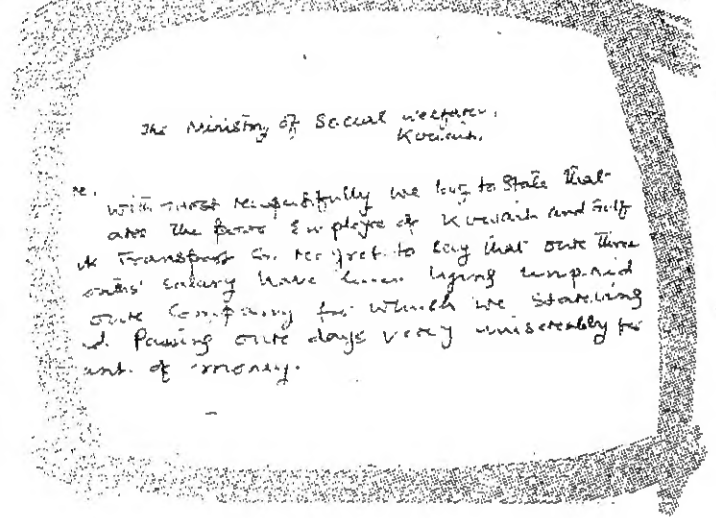 The Ministry of Social welfare,
Kuwait.
re,
with most respectfully we beg to state that
are the poor Employe of Kuwait and Gulf
k Transport Co. regret to say that oure three
onths' salary have been lying unpaid
oure Company for which we stareving
d. Passing oure days verey miserably for
ant. of money.